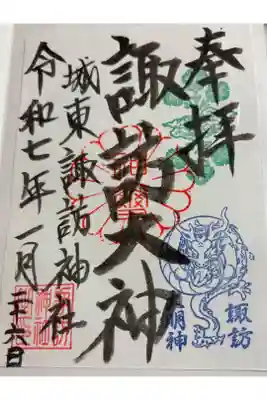 奉拝
諏訪大神
城東諏訪神社
令和七年一月
二十六日
諏訪
明神